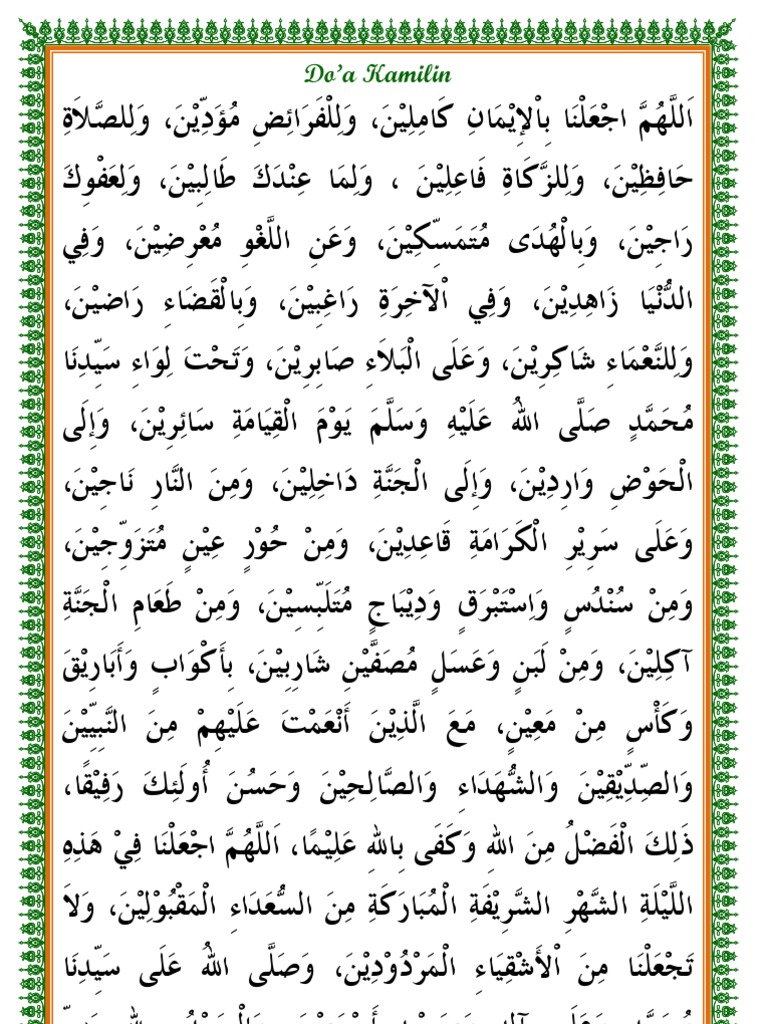 Do'a Kamilin
اَللَّهُمَّ اجْعَلْنَا بِاْلإِيْمَانِ كَامِلِيْنَ، وَلِلْفَرَائِضِ مُؤَدِّيْنَ، وَلِلصَّلاَةِ
حَافِظِيْنَ، وَلِلزَّكَاةِ فَاعِلِيْنَ ، وَلِمَا عِنْدَكَ طَالِبِيْنَ، وَلِعَفْوِكَ
رَاجِيْنَ، وَبِالْهُدَى مُتَمَسِّكِيْنَ، وَعَنِ اللَّغْوِ مُعْرِضِيْنَ، وَفِي
الدُّنْيَا زَاهِدِيْنَ، وَفِي اْلآخِرَةِ رَاغِبِيْنَ، وَبِالْقَضَاءِ رَاضِيْنَ،
وَلِلنَّعْمَاءِ شَاكِرِيْنَ، وَعَلَى الْبَلاَءِ صَابِرِيْنَ، وَتَحْتَ لِوَاءِ سَيِّدِنَا
مُحَمَّدٍ صَلَّى اللهُ عَلَيْهِ وَسَلَّمَ يَوْمَ الْقِيَامَةِ سَائِرِيْنَ، وَإِلَى
الْحَوْضِ وَارِدِيْنَ، وَإِلَى الْجَنَّةِ دَاخِلِيْنَ، وَمِنَ النَّارِ نَاجِيْنَ،
وَعَلَى سَرِيْرِ الْكَرَامَةِ قَاعِدِيْنَ، وَمِنْ حُوْرٍ عِيْنٍ مُتَزَوِّجِيْنَ،
وَمِنْ سُنْدُسٍ وَاِسْتَبْرَقٍ وَدِيْبَاجٍ مُتَلَبِّسِيْنَ، وَمِنْ طَعَامِ الْجَنَّةِ
آكِلِيْنَ، وَمِنْ لَبَنٍ وَعَسَلٍ مُصَفَّيْنِ شَارِبِيْنَ، بِأَكْوَابٍ وَأَبَارِيْقَ
وَكَأْسٍ مِنْ مَعِيْنٍ، مَعَ الَّذِيْنَ أَنْعَمْتَ عَلَيْهِمْ مِنَ النَّبِيِّيْنَ
وَالصِّدِّيْقِيْنَ وَالشُّهَدَاءِ وَالصَّالِحِيْنَ وَحَسُنَ أُولَئِكَ رَفِيْقًا،
ذَلِكَ الْفَضْلُ مِنَ اللهِ وَكَفَى بِاللهِ عَلِيْمًا، اَللَّهُمَّ اجْعَلْنَا فِيْ هَذِهِ
اللَّيْلَةِ الشَّهْرِ الشَّرِيْفَةِ الْمُبَارَكَةِ مِنَ السُّعَدَاءِ الْمَقْبُوْلِيْنَ، وَلاَ
تَجْعَلْنَا مِنَ اْلأَشْقِيَاءِ الْمَرْدُوْدِيْنَ، وَصَلَّى اللهُ عَلَى سَيِّدِنَا